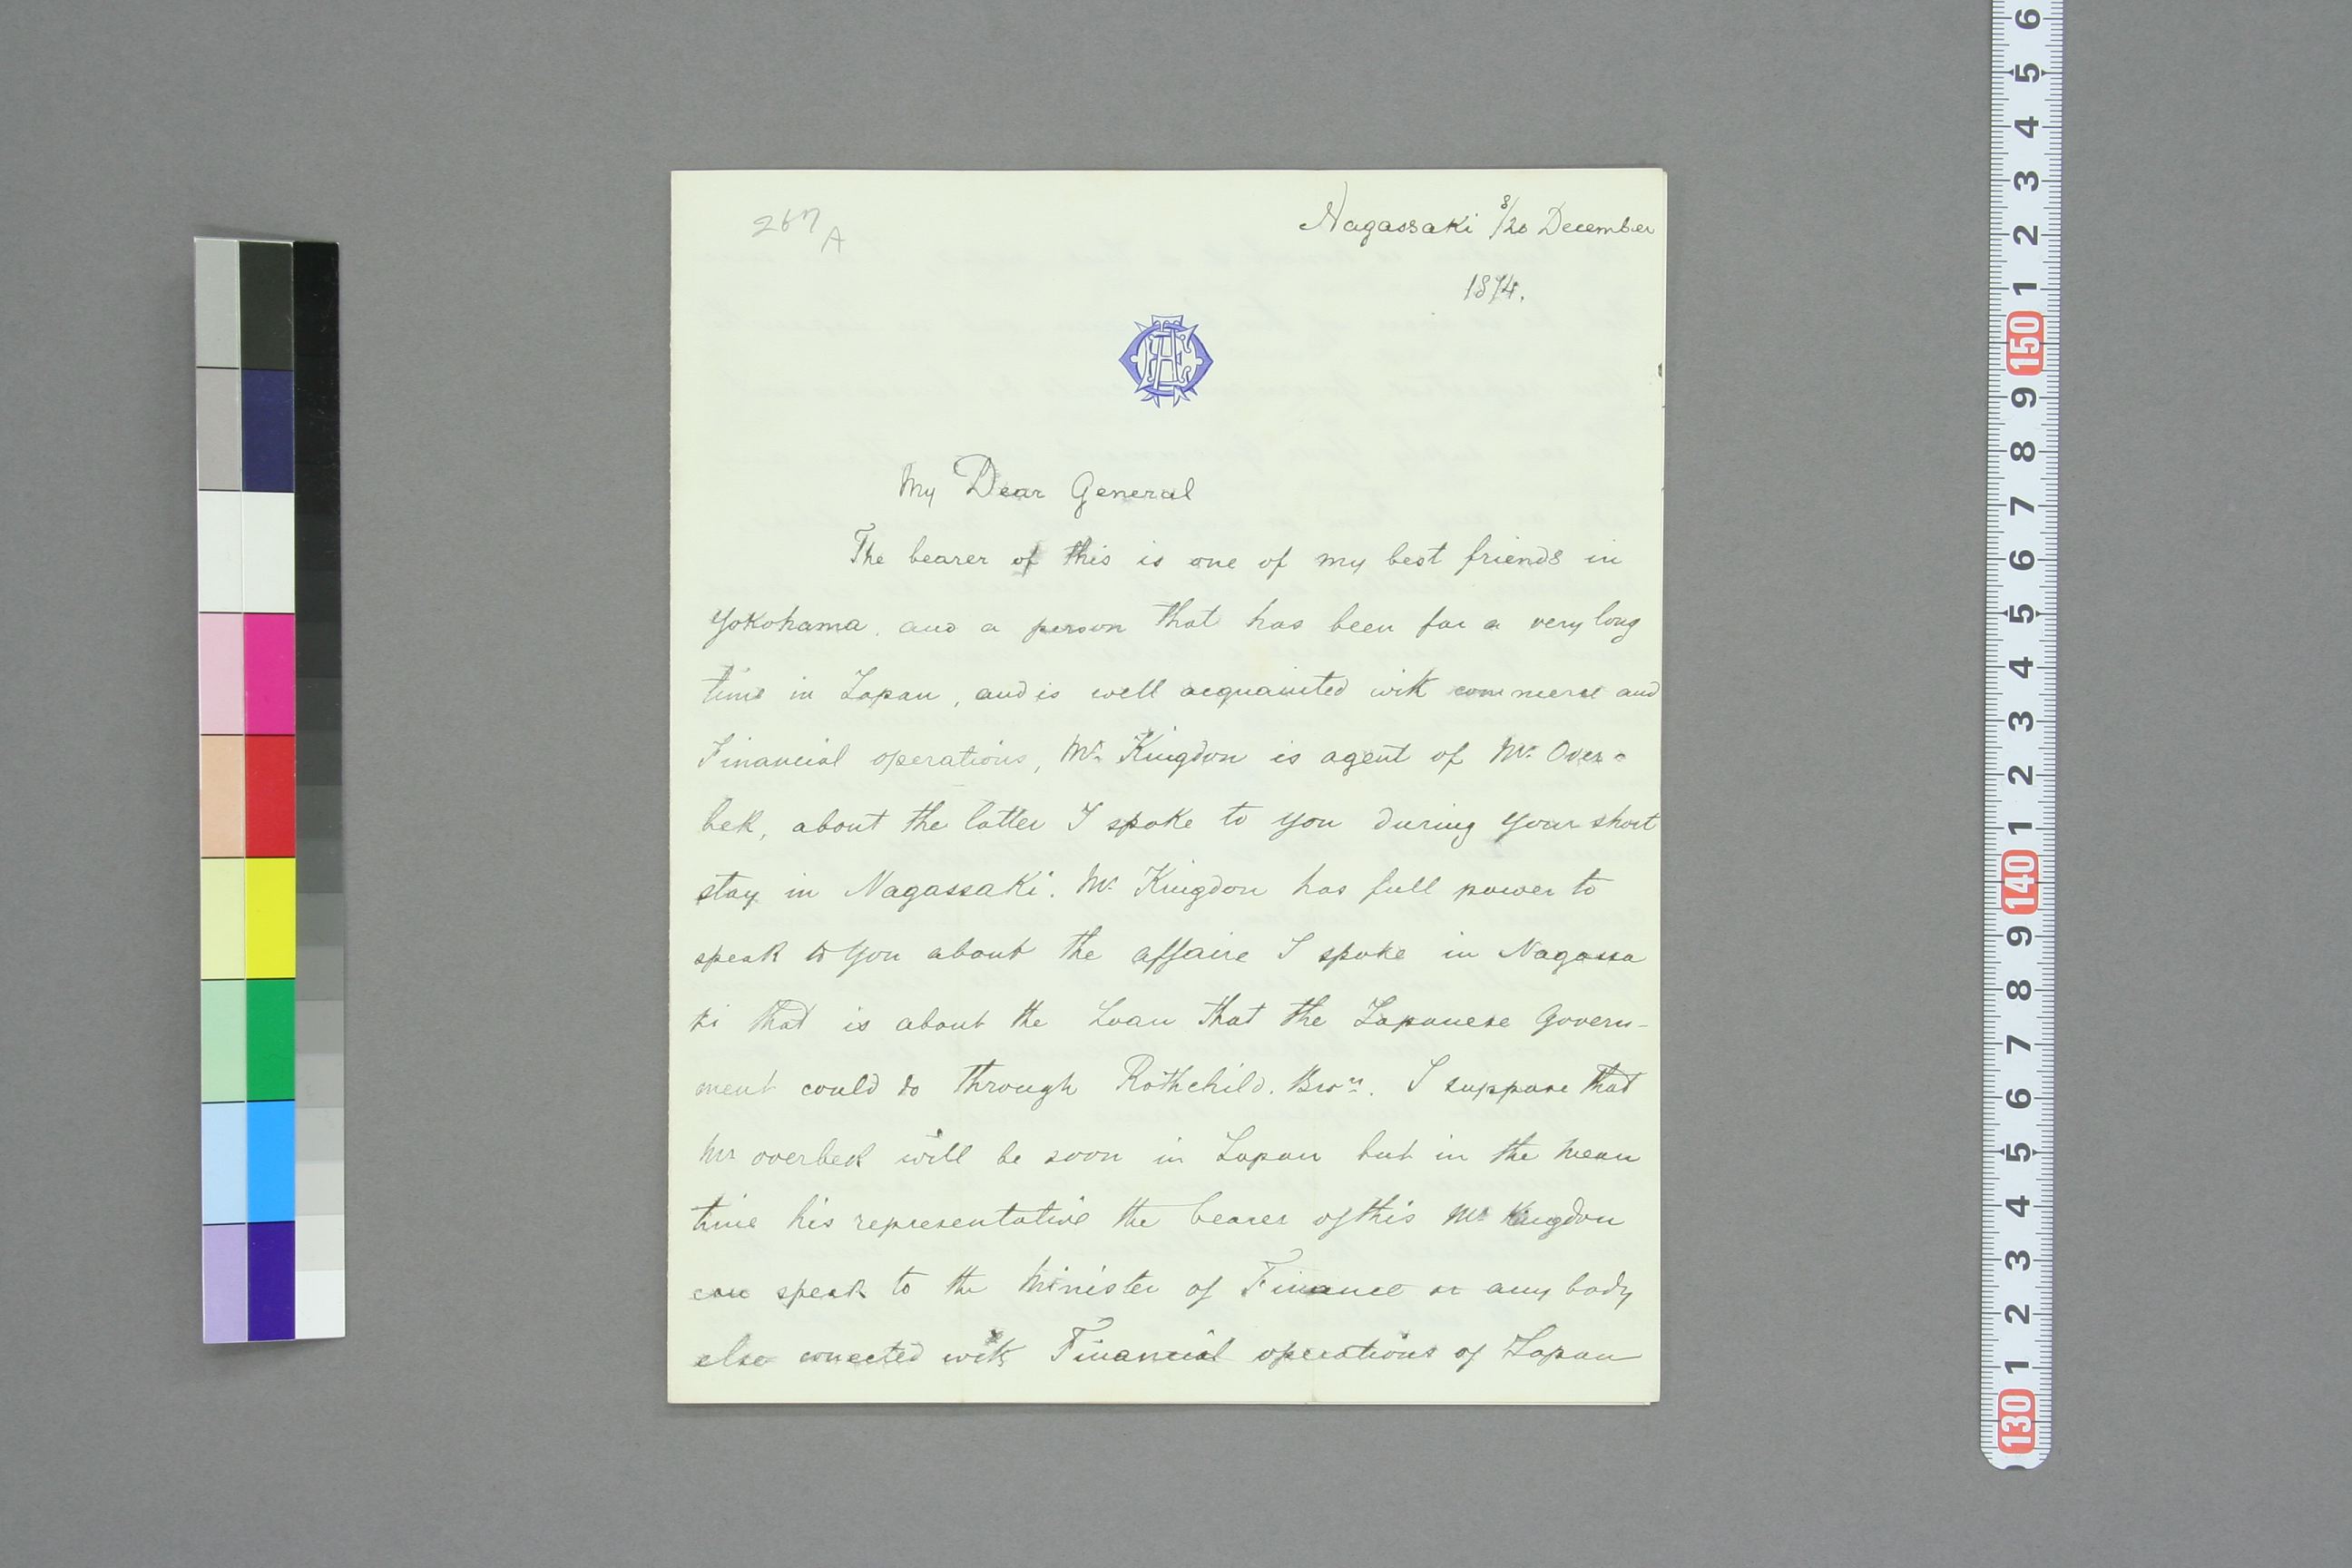 267 A
Nagassaki 8/20 December
1874.
My Dear General
The bearer of this is one of my best friends in
Yokohama, and a person that has been for a very long
time in Japan, and is well acquainted with commerce and
Financial operations, Mr. Kingdon is agent of Mr. Over-
bek, about the latter I spoke to you during your short
stay in Nagassaki. Mr. Kingdon has full power to
speak to you about the affaire I spoke in Nagassa
ki that is about the Loan that the Japanese Govern-
ment could do through Rothchild. Bros. I suppose that
Mr overbek will be soon in Japan but in the mean
time his representative the bearer of this Mr Kingdon
can speak to the Minister of Finance or any body
else conected with Financial operations of Japan
6
5
4
3
2
1
150
9
8
7
6
5
4
3
2
1
140
9
8
7
6
5
4
3
2
1
130